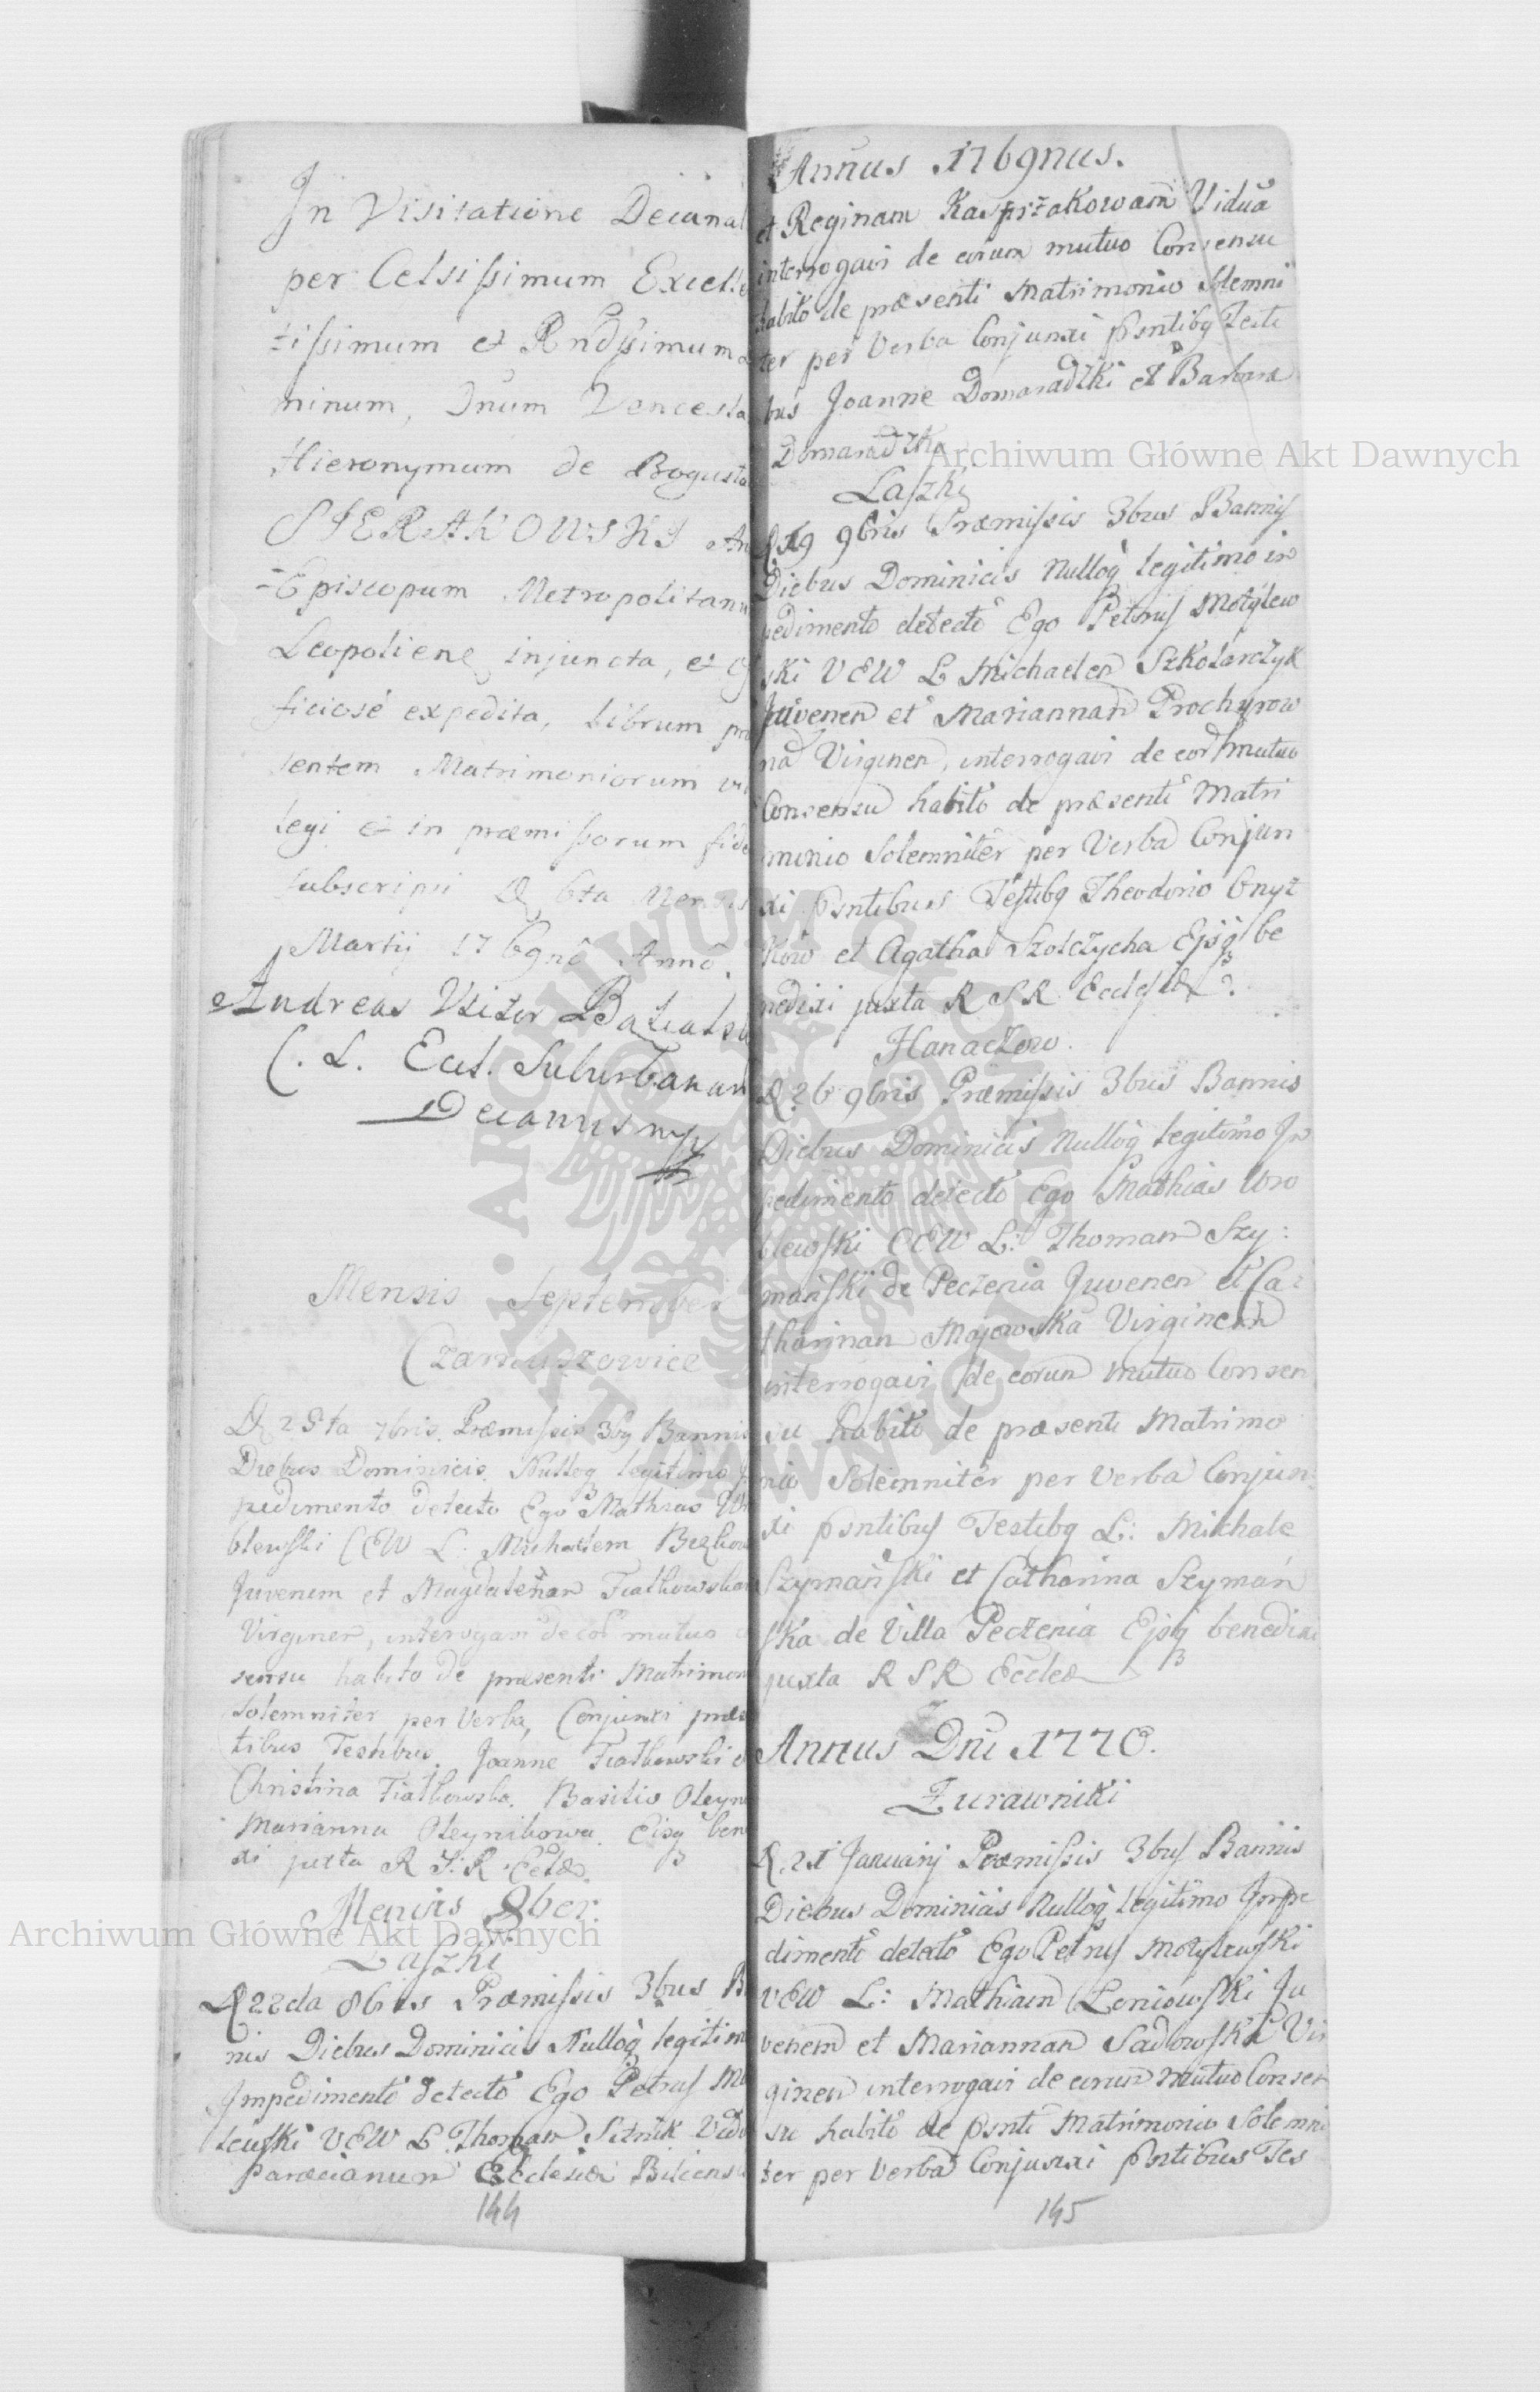 In Visitatione Decanal
per Celsissimum Excelle
tissimum et Rndssimum
minum, Dnum Vencesla
Hieronymum de Bogusla
SIERAKOWSKI Ar
Episcopum Metropolitanu
Leopoliens injuncta, et of
ficiosé expedita, Librum præ
sentem Matrimoniorum
legi et in præmissorum fide
subscripsi D 6ta Mensis
Martij 1769nô Annô
Andreas Usisor
C. L. Eccl. Suburbanar
Decanus mp
Mensis September
Czarnuszowice
D 28ta 7bris Præmissis 3bq Bannis
Diebus Dominicis, Nulloq legitimo
pedimento detecto Ego Mathias Wro
blewski CEW L: Michaelem
Juvenem et Magdalenam Fiałkowska
Virginem, interrogavi de eor mutuo
sensu habito de præsenti Matrimon
solemniter per Verba, Conjunxi præs
tibus Testibus, Joanne Fiałkowski
Christina Fiałkowska, Basilio Oleyn
Marianna Oleynikowa, Eisq ben
xi juxta R S: R Eclæ
Mensis 8ber.
Laszki
D 22da 8bris Præmissis 3bus Ba
nis Diebus Dominicis Nulloq legitim
Impedimentô detectô Ego Petrus Mo
lewski VEW L Thoman Sitnik Vidu
paræcianum Ecclesiæ Biliens
144
Annus 1769nus.
et Reginam Kasprzakowam Viduã
interrogavi de eorum mutuo Consensu
habitô de præsenti Matrimonio Solemni
ter per Verba Conjunxi psntibq Testi
bus Joanne Domaradzki et Barbara
Domaradzka
Laszki
D 19 9bris Præmissis 3bus Bannis
Diebus Dominicis Nulloq legitimo im
pedimentô detectô Ego Petrus Motylew
ski VEW L Michaelem Szkolarczyk
Juvenem et Mariannam Prochyrow
na Virginem, interrogavi de eor mutuo
Consensu habitô de præsenti Matri
monio Solemniter per Verba Conjun
xi psntibus Testibq Theodorio Cnyz
ków et Agatha Szolczycha Ejsq be
nedixi juxta R S R Ecclesiæ.
Hanaczow.
D 26 9bris Præmissis 3bus Bannis
Diebus Dominicis Nulloq legitimo Im
pedimentô detectô Ego Mathias Wro
blewski CEW L: Thoman Szy:
mański de Peczenia Juvenem et Ca:
tharinam Majewska Virginem
interrogavi de eorum mutuo Consen
su habitô de præsenti Matrimo
nio Solemniter per Verba Conjun
xi psntibus Testibq L: Michale
Szymański et Catharina Szymań
ska de Villa Peczenia Ejsq benedixi
juxta R S R Eccleæ
Annus Dni 1770.
Zurawniki
D 21 Januarij Præmissis 3bus Bannis
Diebus Dominicis Nulloq legitimo Impe
dimentô detectô Ego Petrus Motylewski
VEW L: Mathiam Leniowski Ju
venem et Mariannam Sadowska Vir
ginem interrogavi de eorum mutuo Consen
su habitô de psnti Matrimonio Solemni
ter per Verba Conjunxi psntibus Tes
145
Archiwum Główne Akt Dawnych
Archiwum Główne Akt Dawnych